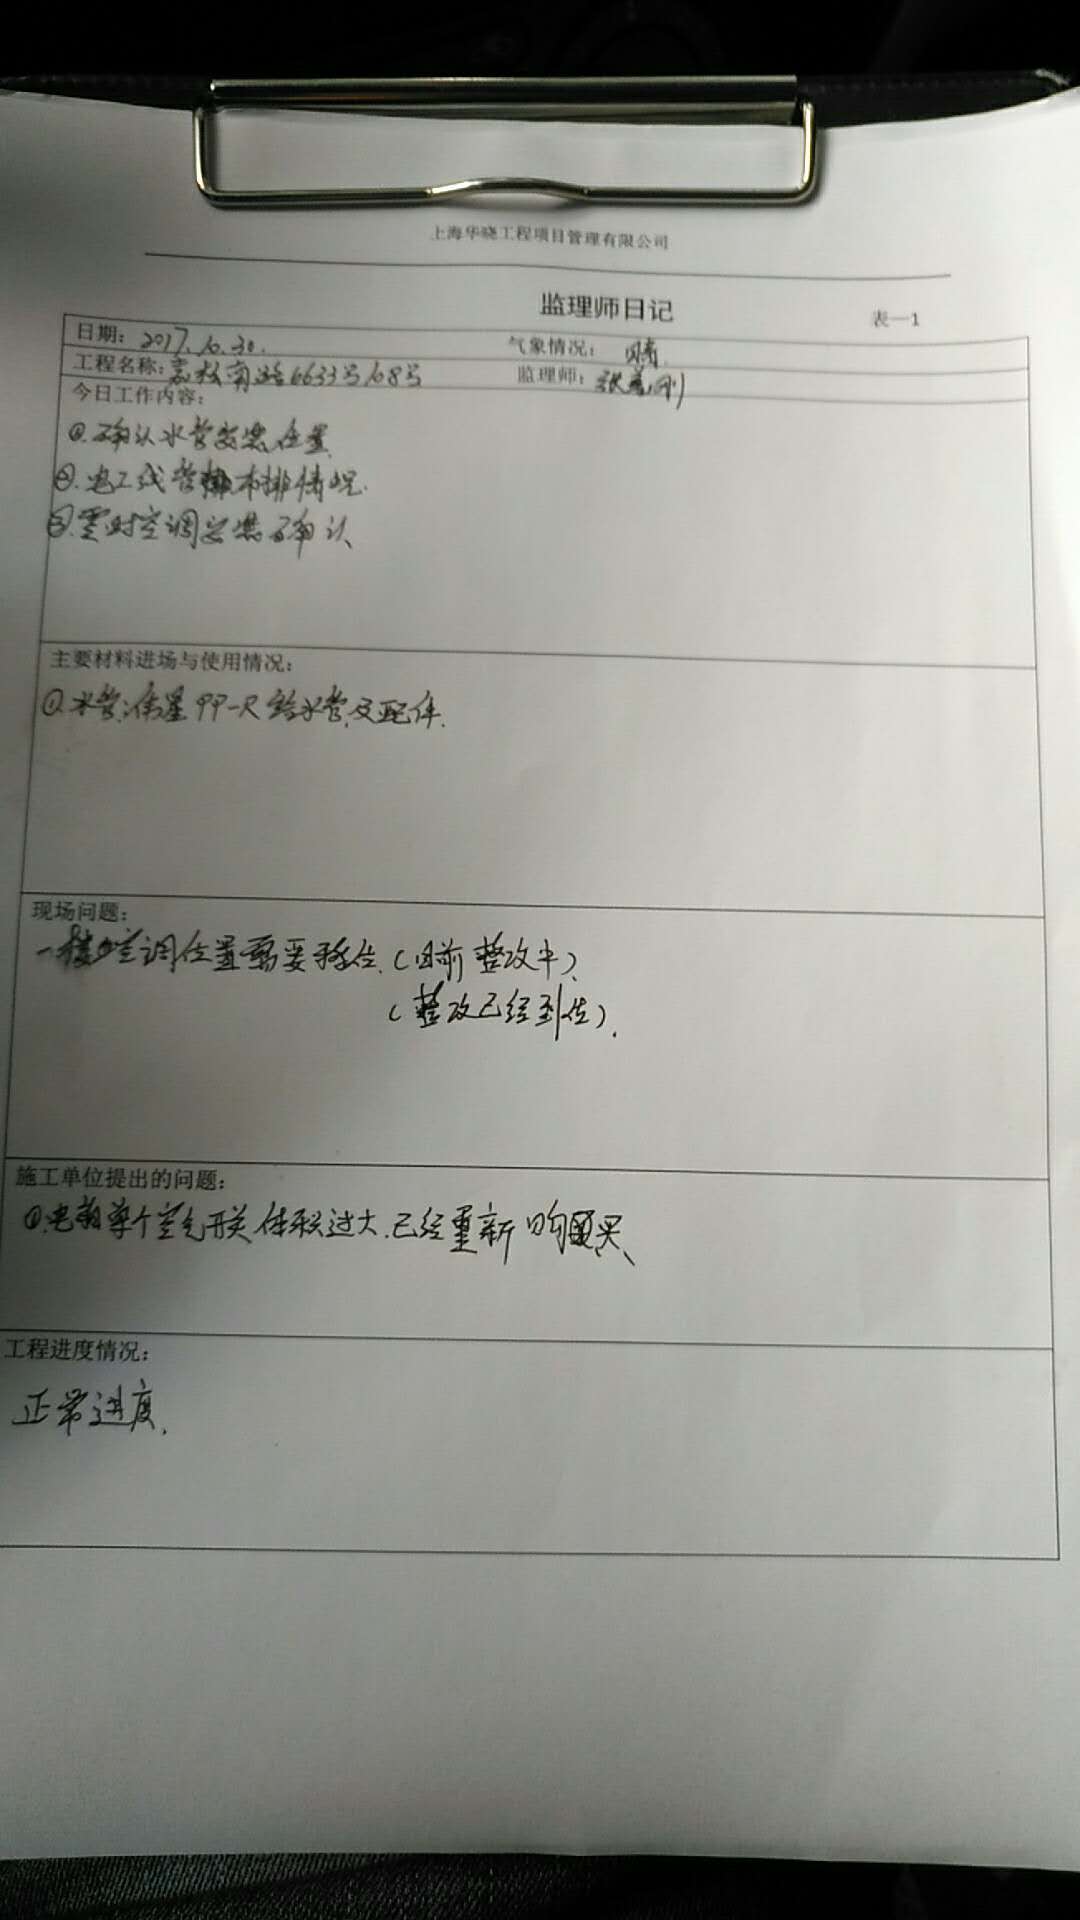 上海华晓工程项目管理有限公司
监理师日记
表—1
日期：2017.10.30.
气象情况：晴.
工程名称：嘉松南路6633号108号
监理师：张
今日工作内容：
①.确认水管安装位置
②.电工线管 布排情况.
③.空调安装确认
主要材料进场与使用情况：
①.水管：伟星PP-R给水管及配件.
现场问题：
一楼空调位置需要移位.（目前整改中）、
（整改已经到位）.
施工单位提出的问题：
①.电箱单个空气开关体积过大.已经重新购买、
工程进度情况：
正常进度.